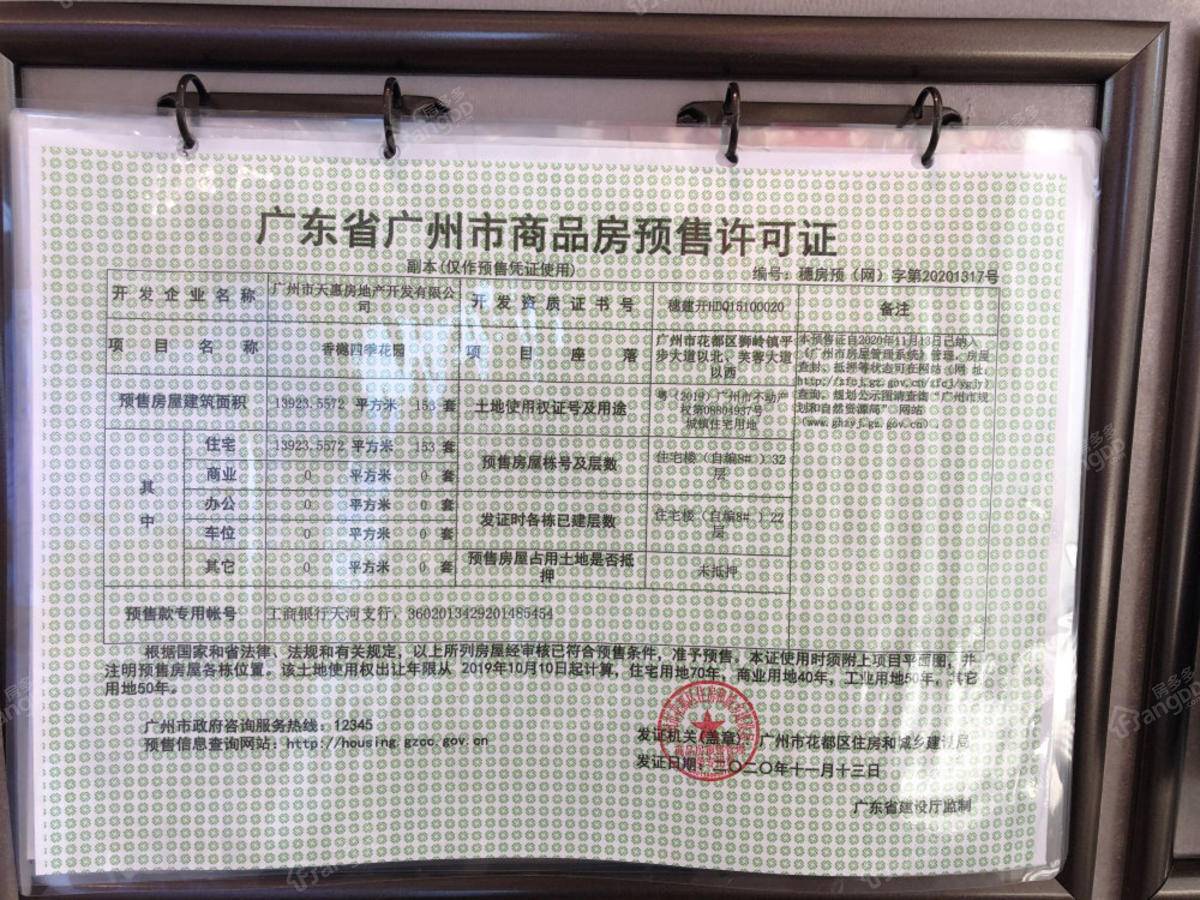 广东省广州市商品房预售许可证
副本(仅作预售凭证使用)
编号：穗房预（网）字第20201317号
开发企业名称
广州市天惠房地产开发有限公
司
开发资质证书号
穗建开HDQ15100020
备注
项目名称
香樾四季花园
项目座落
广州市花都区狮岭镇平
步大道以北、芙蓉大道
以西
本预售证自2020年11月13日已纳入
《广州市房屋管理系统》管理，房屋
查封、抵押等状态可在网站（网 址：
http://zfcj.gz.gov.cn/zfcj/ygjy）
查询，规划公示图请查询“广州市规
划和自然资源局”网站
(www.ghzyj.gz.gov.cn)．
预售房屋建筑面积
13923.5572 平方米 153 套
土地使用权证号及用途
粤（2019）广州市不动产
权第08804937号
城镇住宅用地
其中
住宅
13923.5572 平方米 153 套
预售房屋栋号及层数
住宅楼（自编8# ）32
层
商业
0 平方米 0 套
办公
0 平方米 0 套
发证时各栋已建层数
住宅楼（自编8# ）22
层
车位
0 平方米 0 套
其它
0 平方米 0 套
预售房屋占用土地是否抵
押
未抵押
预售款专用帐号
工商银行天河支行，3602013429201485454
根据国家和省法律、法规和有关规定，以上所列房屋经审核已符合预售条件，准予预售。本证使用时须附上项目平面图，并
注明预售房屋各栋位置。该土地使用权出让年限从 2019年10月10日起计算，住宅用地70年，商业用地40年，工业用地50年，其它
用地50年。
广州市政府咨询服务热线：12345
预售信息查询网站：http://housing.gzcc.gov.cn
发证机关(盖章)：广州市花都区住房和城乡建设局
发证日期：二〇二〇年十一月十三日
广东省建设厅监制